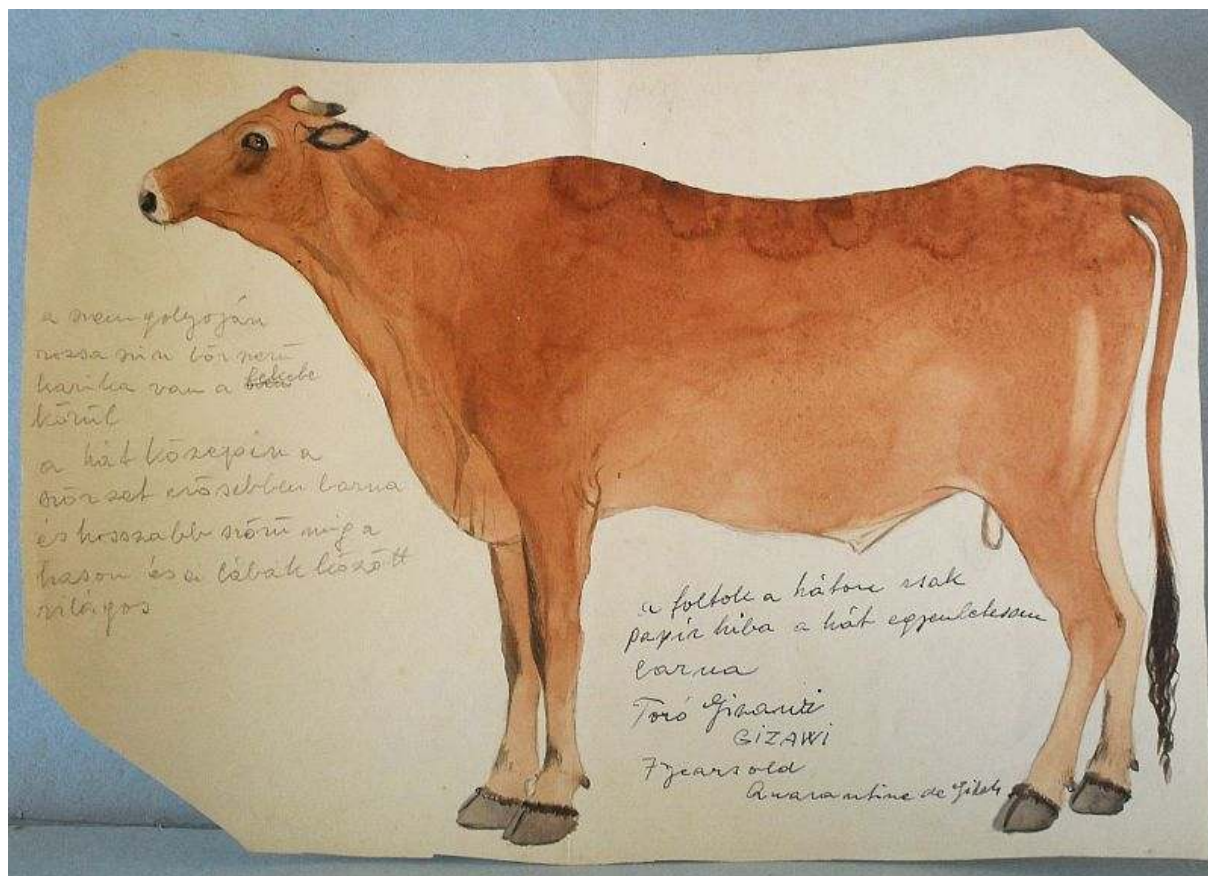 a szemgolyóján
rózsa szin bőr szerü
karika van a fekete
körül
a hát közepén a
szőrzet erősebben barna
és hosszabb szőrü mig a
hason és a lábak között
világos
a foltok a háton csak
papir hiba a hát egyenletesen
barna
Toró
GIZAWI
7 years old
Quarantine de